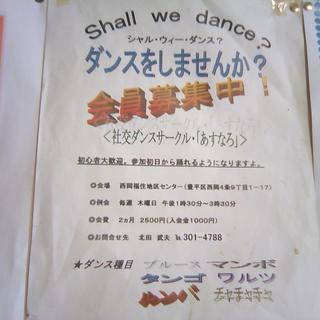 Shall we dance?
シャル・ウィー・ダンス?
ダンスをしませんか?
会員募集中!
<社交ダンスサークル・「あすなろ」>
初心者大歓迎。参加初日から踊れるようになりますよ。
◎会場 西岡福住地区センター(豊平区西岡4条9丁目1-17)
◎例会 毎週 木曜日 午後1時30分~3時30分
◎会費 2ヵ月 2500円(入会金1000円)
◎お問合せ先 北田 武夫 ℡301-4788
★ダンス種目 ブルース マンボ
タンゴ ワルツ
ルンバ チャチャチャ